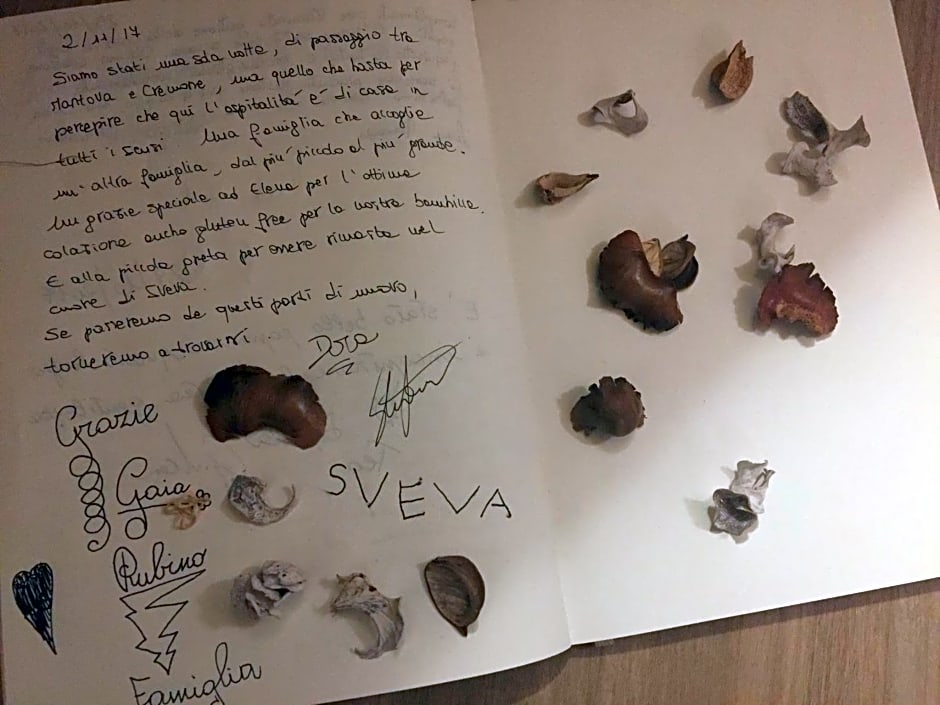 2/11/17
Siamo stati una sola notte, di passaggio tra
Mantova e Cremone, ma quello che basta per
percepire che qui l'ospitalità è di casa in
tutti i sensi. Una famiglia che accoglie
un'altra famiglia, dal più piccolo al più grande.
Un grazie speciale ad Elena per l'ottima
colazione anche gluten free per la nostra bambina.
E alla piccola Greta per essere rimasta nel
cuore di Sveva.
Se passeremo da questi posti di nuovo,
torneremo a trovarvi
Dora
Stefano
Grazie
Gaia
SVEVA
Rubino
Famiglia